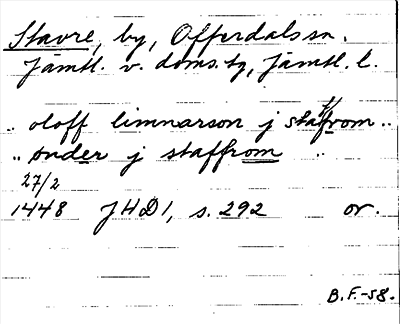 Stavre, by, Offerdals sn.
Jämtl. v. doms.tg, Jämtl. l.
„ oloff limnarson j staffrom „
„ onder j staffrom „
27/2
1448 JHD1, s. 292 or.
B.F.-58.